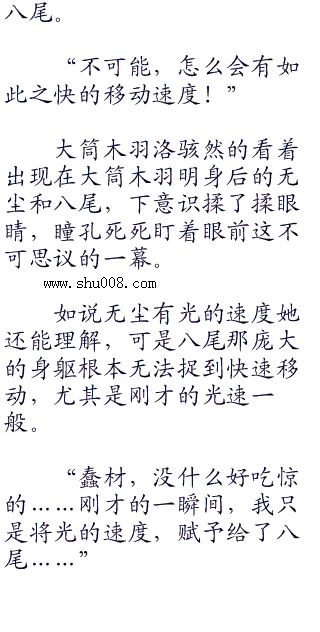 八尾。
“不可能，怎么会有如
此之快的移动速度！”
大筒木羽洛骇然的看着
出现在大筒木羽明身后的无
尘和八尾，下意识揉了揉眼
睛，瞳孔死死盯着眼前这不
可思议的一幕。
www.shu008.com
如说无尘有光的速度她
还能理解，可是八尾那庞大
的身躯根本无法捉到快速移
动，尤其是刚才的光速一
般。
“蠢材，没什么好吃惊
的……刚才的一瞬间，我只
是将光的速度，赋予给了八
尾……”